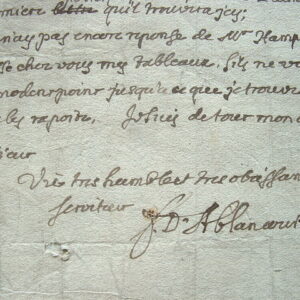 miere qu'il trouvera icy,
n'ay pas encore reponse de Mr. Hamp
chez vous mes tableaux, s'ils ne vo
modent point jusqu'a ce que je trouve
les raporte, Je suis de tout mon c
Vre tres humble et tres obeissan
serviteur
J. D'Ablancourt